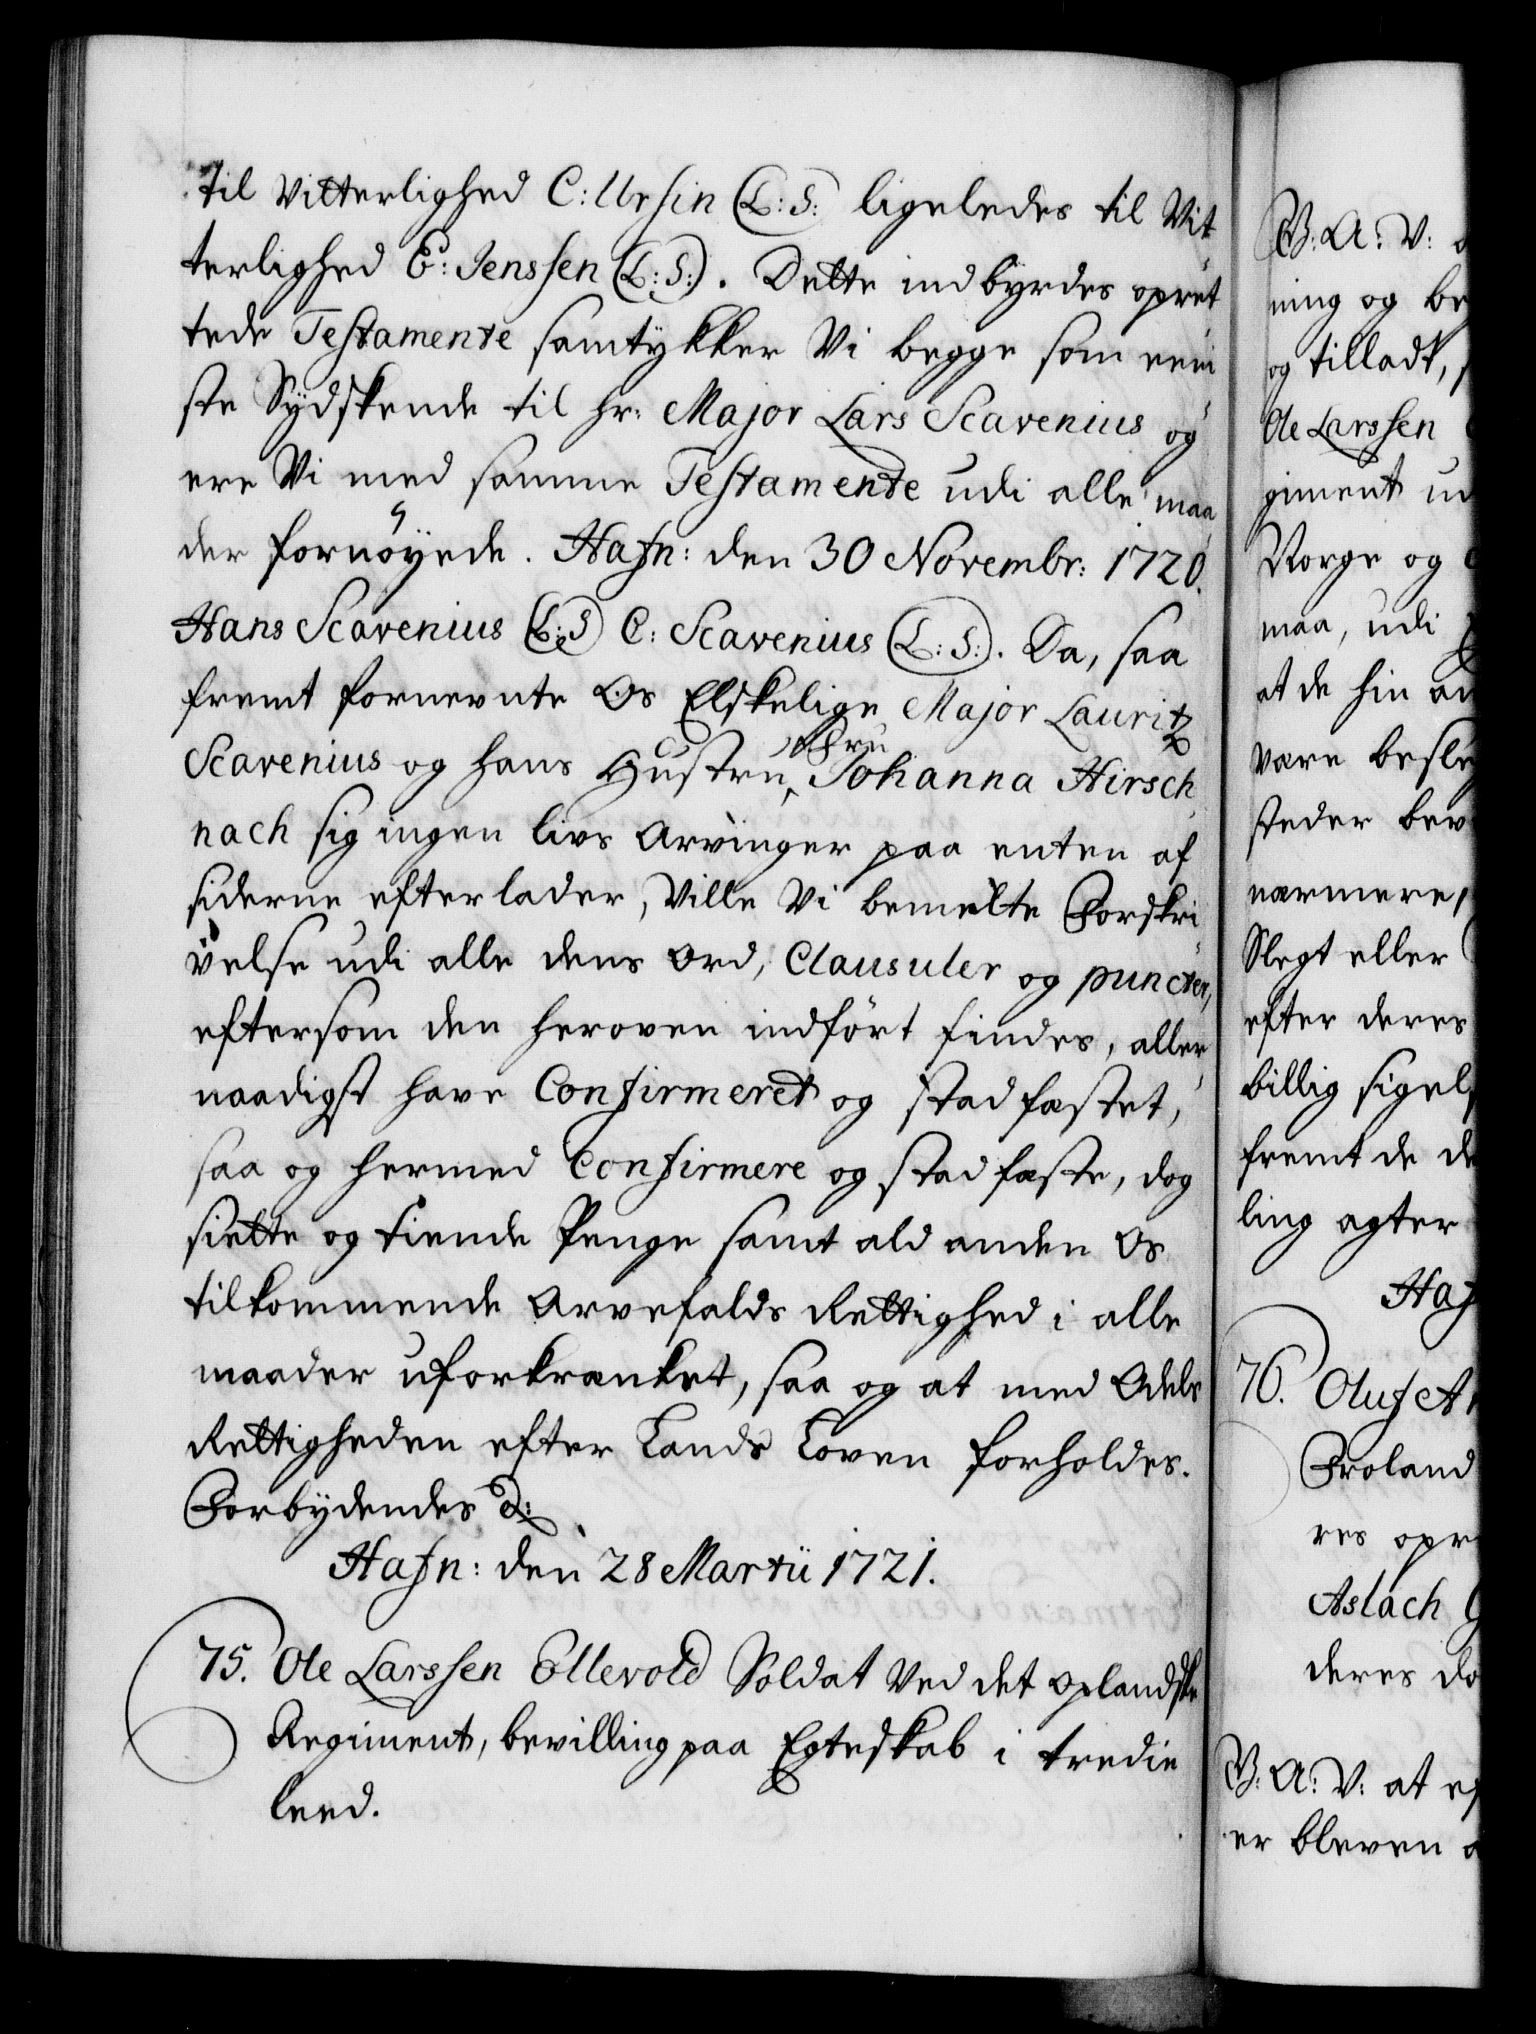 til Vitterlighed C: Ursin (L:S: ligeledes til Vit
terlighed E: Jenssen (L:S:). Dette indbyrdes opret
tede Testamente samtykker Vi begge som eeni
ste Sydskende til hr: Major Lars Scavenius og
ere Vi med samme Testamente udi alle maa
der fornöyede. Hafn: den 30 Novembr: 1720.
Hans Scavenius (L:S) C: Scavenius (L:S:). Da, saa
fremt fornevnte Os Elskelige Major Lauritz
Scavenius og hans Hustru, Fru Johanna Hirsch
nach sig ingen livs Arvinger paa enten af
siderne efterlader, Ville Vi bemelte Forskri
velse udi alle dens Ord, Clausuler og puncter,
eftersom den heroven indfört findes, aller
naadigst have Confirmeret og stadfæstet,
saa og hermed Confirmere og stadfæste, dog
siette og tiende Penge samt ald anden Os
tilkommende Arvefalds Rettighed i alle
maader uforkrænket, saa og at med Odels
Rettigheden efter Lands Loven forholdes.
Forbydendes &:
Hafn: den 28 Martii 1721.
75. Ole Larssen Ellevold Soldat Ved det oplandske
Regiment, bevilling paa Egteskab i tredie
leed.
V: A: V:
ning og be
og tilladt,
Ole Larssen
giment ud
Norge og
maa, udi
at de hin an
være besle
steder bev
nærmere,
Slegt eller
efter deres
billig sigels
fremt de de
ling agter
Haf
76. Oluf A
Froland
res opr
Aslach G
deres do
V: A: V: at ef
er bleven a